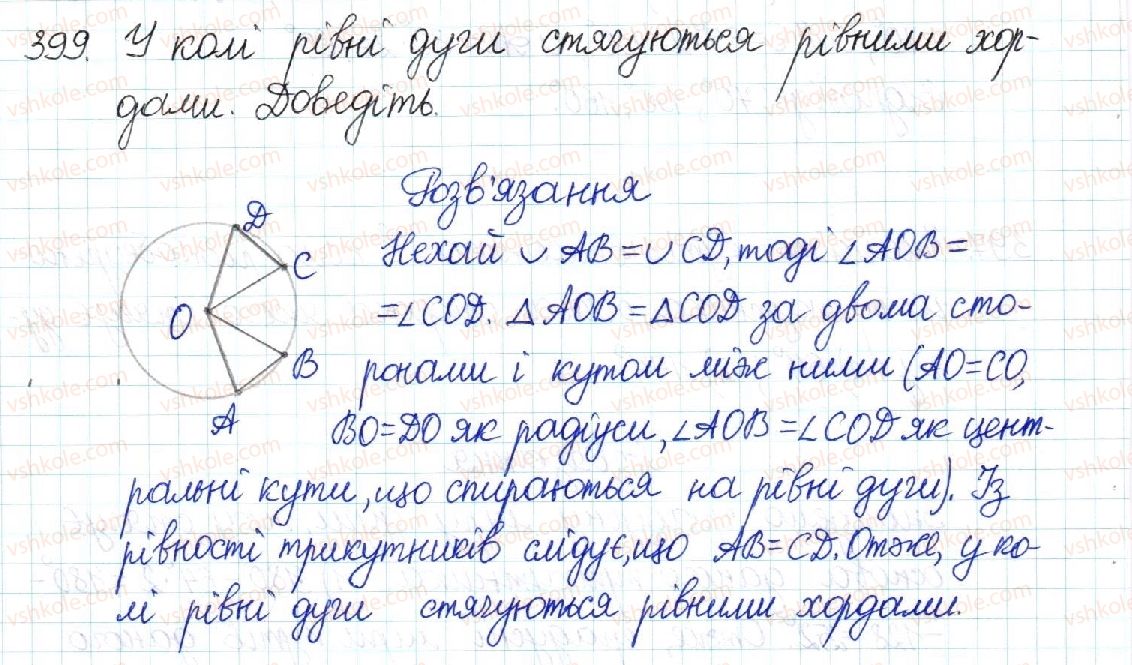 399. У колі рівні дуги стягуються рівними хор-
дами. Доведіть.
Розв'язання
D
C
O
B
A
Нехай ∪ AB = ∪ CD, тоді ∠AOB =
= ∠COD. △AOB = △COD за двома сто-
ронами і кутом між ними (AO=CO,
BO=DO як радіуси, ∠AOB = ∠COD як цент-
ральні кути, що спираються на рівні дуги). Із
рівності трикутників слідує, що AB = CD. Отже, у ко-
лі рівні дуги стягуються рівними хордами.
vshkole.com